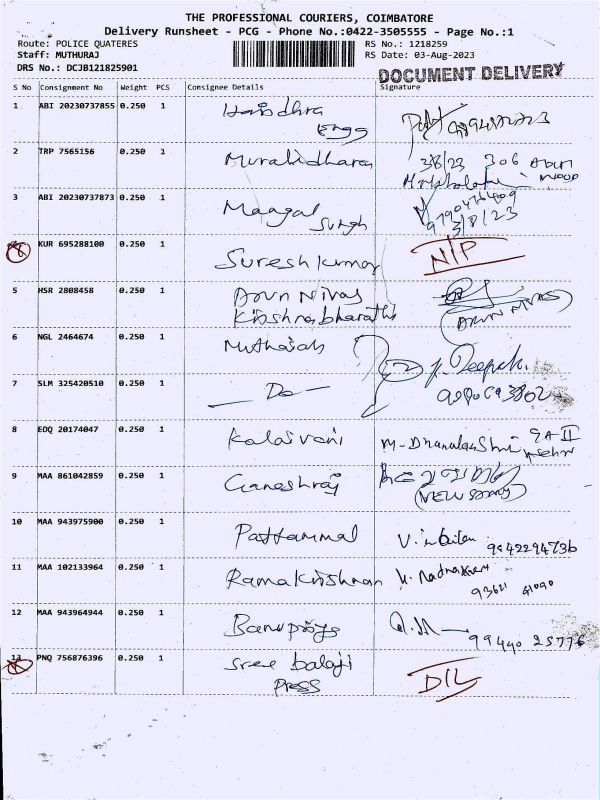 THE PROFESSIONAL COURIERS, COIMBATORE
Delivery Runsheet - PCG - Phone No.:0422-3505555 - Page No.:1
Route: POLICE QUATERES RS No.: 1218259
Staff: MUTHURAJ RS Date: 03-Aug-2023
DRS No.: DCJB121825901
DOCUMENT DELIVERY
S No Consignment No Weight PCS Consignee Details Signature
1 ABI 20230737855 0.250 1
Engg
2 TRP 7565156 0.250 1 Muralidharan 3/8/23 306
3 ABI 20230737873 0.250 1 Maagal
Surgh 3/8/23
KUR 695288100 0.250 1 Suresh kumar N/P
5 HSR 2808458 0.250 1 Arun Nivas
Krishnabharathi (ARUN NIVAS)
6 NGL 2464674 0.250 1 Muthaiah Deepak
7 SLM 325420510 0.250 1 — Do —
8 EDQ 20174047 0.250 1 Kalaivani
9 MAA 861042859 0.250 1 Ganeshraj
10 MAA 943975900 0.250 1 Pattammal 9942294736
11 MAA 102133964 0.250 1 Ramakrishnan
12 MAA 943964944 0.250 1 99440 25776
13 PNQ 756876396 0.250 1 Sree balaji D/L
PRESS